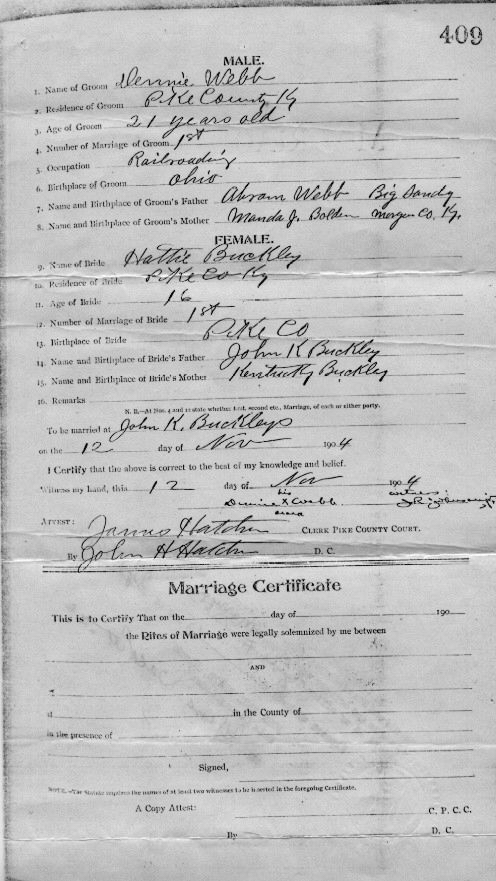 409
MALE.
1. Name of Groom Dennie Webb
2. Residence of Groom Pike County Ky
3. Age of Groom 21 years old
4. Number of Marriage of Groom 1st
5. Occupation Railroading
6. Birthplace of Groom Ohio
7. Name and Birthplace of Groom's Father Abram Webb Big Sandy
8. Name and Birthplace of Groom's Mother Manda J. Bolden Morgan Co, Ky.
FEMALE.
9. Name of Bride Hattie Buckley
10. Residence of Bride Pike Co Ky
11. Age of Bride 16
12. Number of Marriage of Bride 1st
13. Birthplace of Bride Pike Co
14. Name and Birthplace of Bride's Father John K Buckley
15. Name and Birthplace of Bride's Mother Kentucky Buckley
16. Remarks
N. B.—At Nos. 4 and 12 state whether first, second etc., Marriage, of each or either party.
To be married at John K. Buckleys
on the 12 day of Nov 1904
I Certify that the above is correct to the best of my knowledge and belief.
Witness my hand, this 12 day of Nov 1904
his witness
Dennie X Webb
mark
ATTEST: James Hatcher CLERK PIKE COUNTY COURT.
By John H Hatcher D. C.
Marriage Certificate
This is to Certify That on the day of 190
the Rites of Marriage were legally solemnized by me between
AND
at in the County of
in the presence of
Signed,
NOTE.—The Statute requires the names of at least two witnesses to be inserted in the foregoing Certificate.
A Copy Attest: C. P. C. C.
By D. C.